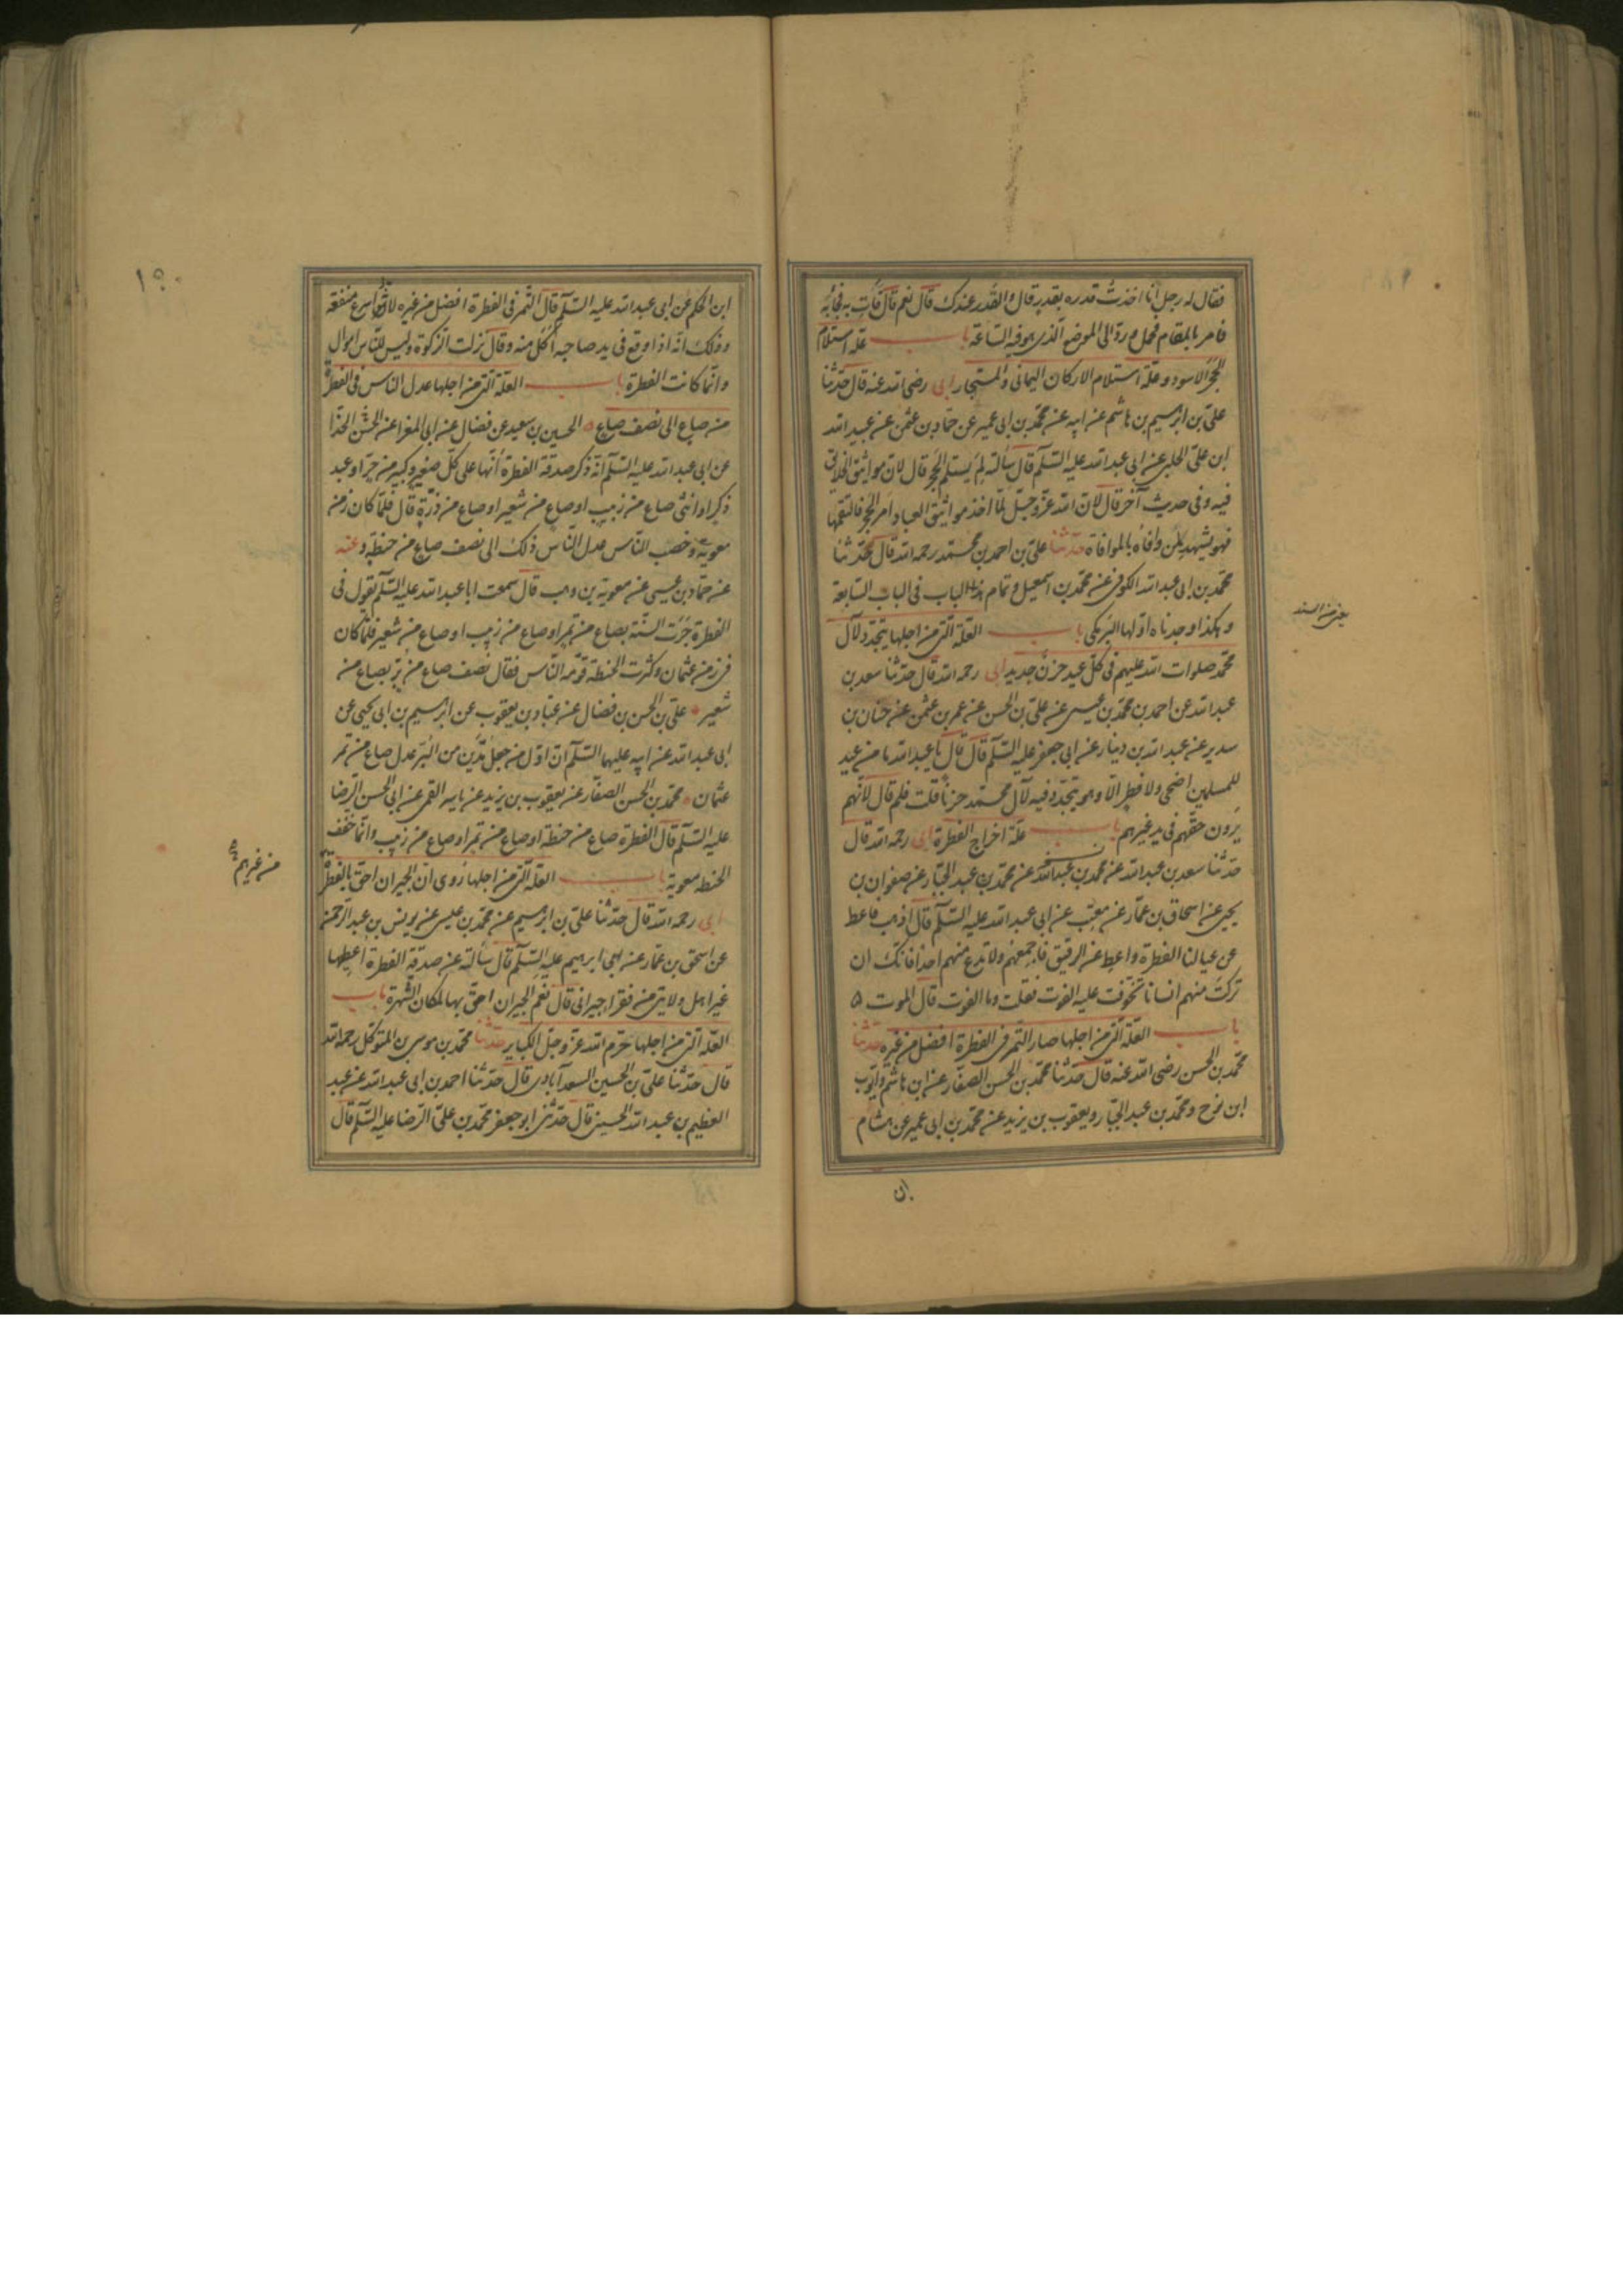 فقال له رجل انا اخذت قدره بقدر قال والقدر عندك قال نعم قال فأت به فجائه
فامر بالمقام فحمل ورد الى الموضع الذى هو فيه الساعة باب علة استلام
الحجر الاسود وعلة استلام الاركان اليمانى والمستجار ابى رضى الله عنه قال حدثنا
على بن ابرهيم بن هاشم عن ابيه عن محمد بن ابى عمير عن حماد بن عثمن عن عبيد الله
ابن على الحلبى عن ابى عبد الله عليه السلم قال سألته لم يستلم الحجر قال لان مواثيق الخلائق
فيه وفى حديث آخر قال لان الله عز وجل لما اخذ مواثيق العباد امر الحجر فالتقمها
فهو يشهد لمن وافاه بالموافاة حدثنا على بن احمد بن محمد رحمه الله قال حدثنا
محمد بن ابى عبد الله الكوفى عن محمد بن اسمعيل وتمام هذا الباب فى الباب السابعة
وهكذا وجدناه اولها البرمكى باب العلة التى من اجلها يتجدد لآل
محمد صلوات الله عليهم فى كل عيد حزن جديد ابى رحمه الله قال حدثنا سعد بن
عبد الله عن احمد بن محمد بن عيسى عن على بن الحسن عن عمر بن عثمن عن حنان بن
سدير عن عبد الله بن دينار عن ابى جعفر عليه السلم قال قال يا عبد الله ما من عيد
للمسلمين اضحى ولا فطر الا وهو يتجدد فيه لآل محمد حزنا قلت فلم قال لانهم
يرون حقهم فى يد غيرهم باب علة اخراج الفطرة ابى رحمه الله قال
حدثنا سعد بن عبد الله عن محمد بن عبد الله عن محمد بن عبد الجبار عن صفوان بن
يحيى عن اسحاق بن عمار عن معتب عن ابى عبد الله عليه السلم قال اذهب فاعط
عن عيالنا الفطرة واعط عن الرقيق فاجمعهم ولا تدع منهم احدا فانك ان
تركت منهم انسانا تخوفت عليه الفوت فقلت وما الفوت قال الموت ۵
باب العلة التى من اجلها صار التمر فى الفطرة افضل من غيره حدثنا
محمد بن الحسن رضى الله عنه قال حدثنا محمد بن الحسن الصفار عن ابن هاشم وايوب
ابن نوح ومحمد بن عبد الجبار ويعقوب بن يزيد عن محمد بن ابى عمير عن هشام
يعنى من السند
ابن
۱۹۰
ابن الحكم عن ابى عبد الله عليه السلم قال التمر فى الفطرة افضل من غيره لانه اسرع منفعة
وذلك انه اذا وقع فى يد صاحبه اكل منه وقال نزلت الزكوة وليس للناس اموال
وانما كانت الفطرة باب العلة التى من اجلها عدل الناس فى الفطرة
من صاع الى نصف صاع الحسين بن سعيد عن فضال عن ابى المغرا عن الحسن الحذا
عن ابى عبد الله عليه السلم انه ذكر صدقة الفطرة انها على كل صغير وكبير من حر او عبد
ذكر او انثى صاع من زبيب او صاع من شعير او صاع من ذرة قال فلما كان زمن
معوية وخصب الناس عدل الناس ذلك الى نصف صاع من حنطة وعنه
عن حماد بن عيسى عن معوية بن وهب قال سمعت ابا عبد الله عليه السلم يقول فى
الفطرة جرت السنة بصاع من تمر او صاع من زبيب او صاع من شعير فلما كان
فى زمن عثمان وكثرت الحنطة قومه الناس فقال نصف صاع من بر بصاع من
شعير على بن الحسن بن فضال عن عباد بن يعقوب عن ابرهيم بن ابى يحيى عن
ابى عبد الله عن ابيه عليهما السلم ان اول من جعل مدين من البر عدل صاع من تمر
عثمان محمد بن الحسن الصفار عن يعقوب بن يزيد عن ياسر القمى عن ابى الحسن الرضا
عليه السلم قال الفطرة صاع من حنطة او صاع من تمر او صاع من زبيب وانما خفف
الحنطه معوية باب العلة التى من اجلها روى ان الجيران احق بالفطرة
من غيرهم
ابى رحمه الله قال حدثنا على بن ابرهيم عن محمد بن عيسى عن يونس بن عبد الرحمن
عن اسحق بن عمار عن ابى ابرهيم عليه السلم قال سألته عن صدقة الفطرة اعطها
غير اهل ولايتى من فقراء جيرانى قال نعم الجيران احق بها لمكان الشهرة باب
العلة التى من اجلها حرم الله عز وجل الكباير حدثنا محمد بن موسى بن المتوكل رحمه الله
قال حدثنا على بن الحسين السعد آبادى قال حدثنا احمد بن ابى عبد الله عن عبد
العظيم بن عبد الله الحسنى قال حدثنى ابو جعفر محمد بن على الرضا عليه السلم قال